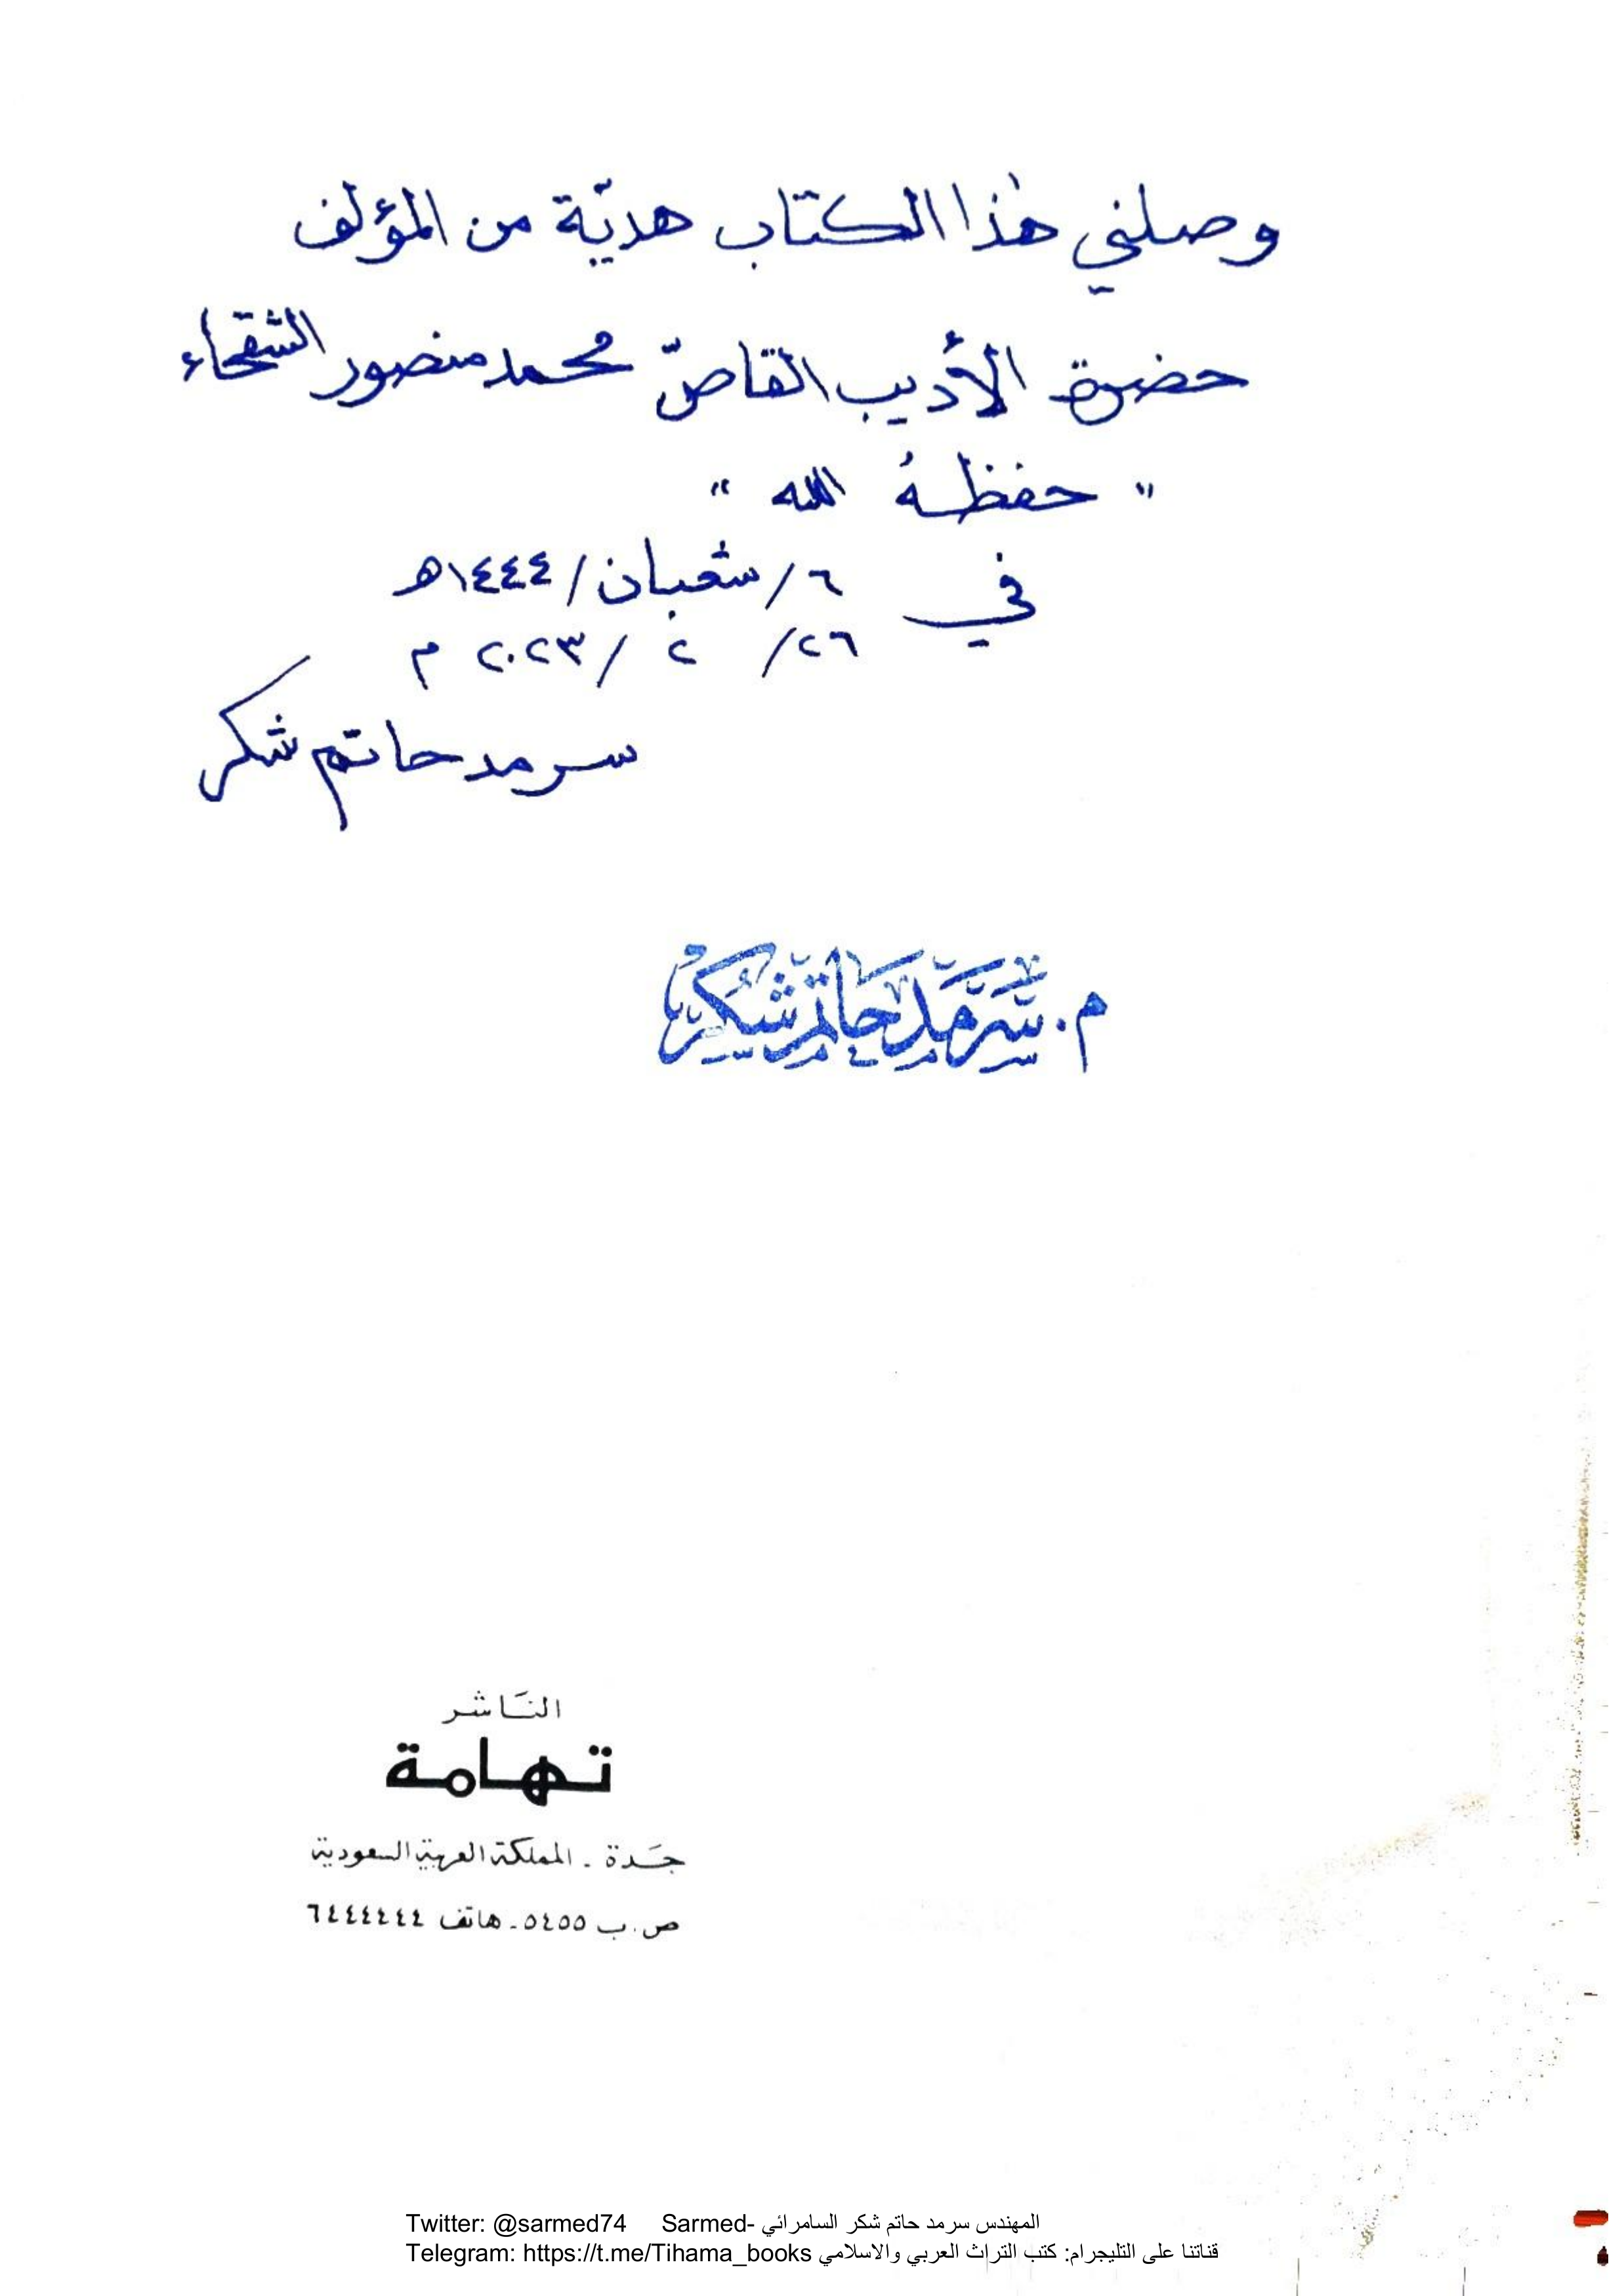 وصلني هٰذا الكتاب هديّة من المؤلف
حضرة الأديب القاصّ محمد منصور الشقحاء
" حفظهُ الله "
في ٦/شعبان/١٤٤٤ه
٢٦/ ٢ /٢٠٢٣ م
سرمد حاتم شكر
م. سَرمَد حَاتم شُكر
النَاشر
تهامة
جَدة - المملكة العربية السعودية
ص.ب ٥٤٥٥ - هاتف ٦٤٤٤٤٤٤
Twitter: @sarmed74 Sarmed- المهندس سرمد حاتم شكر السامرائي
Telegram: https://t.me/Tihama_books قناتنا على التليجرام: كتب التراث العربي والاسلامي